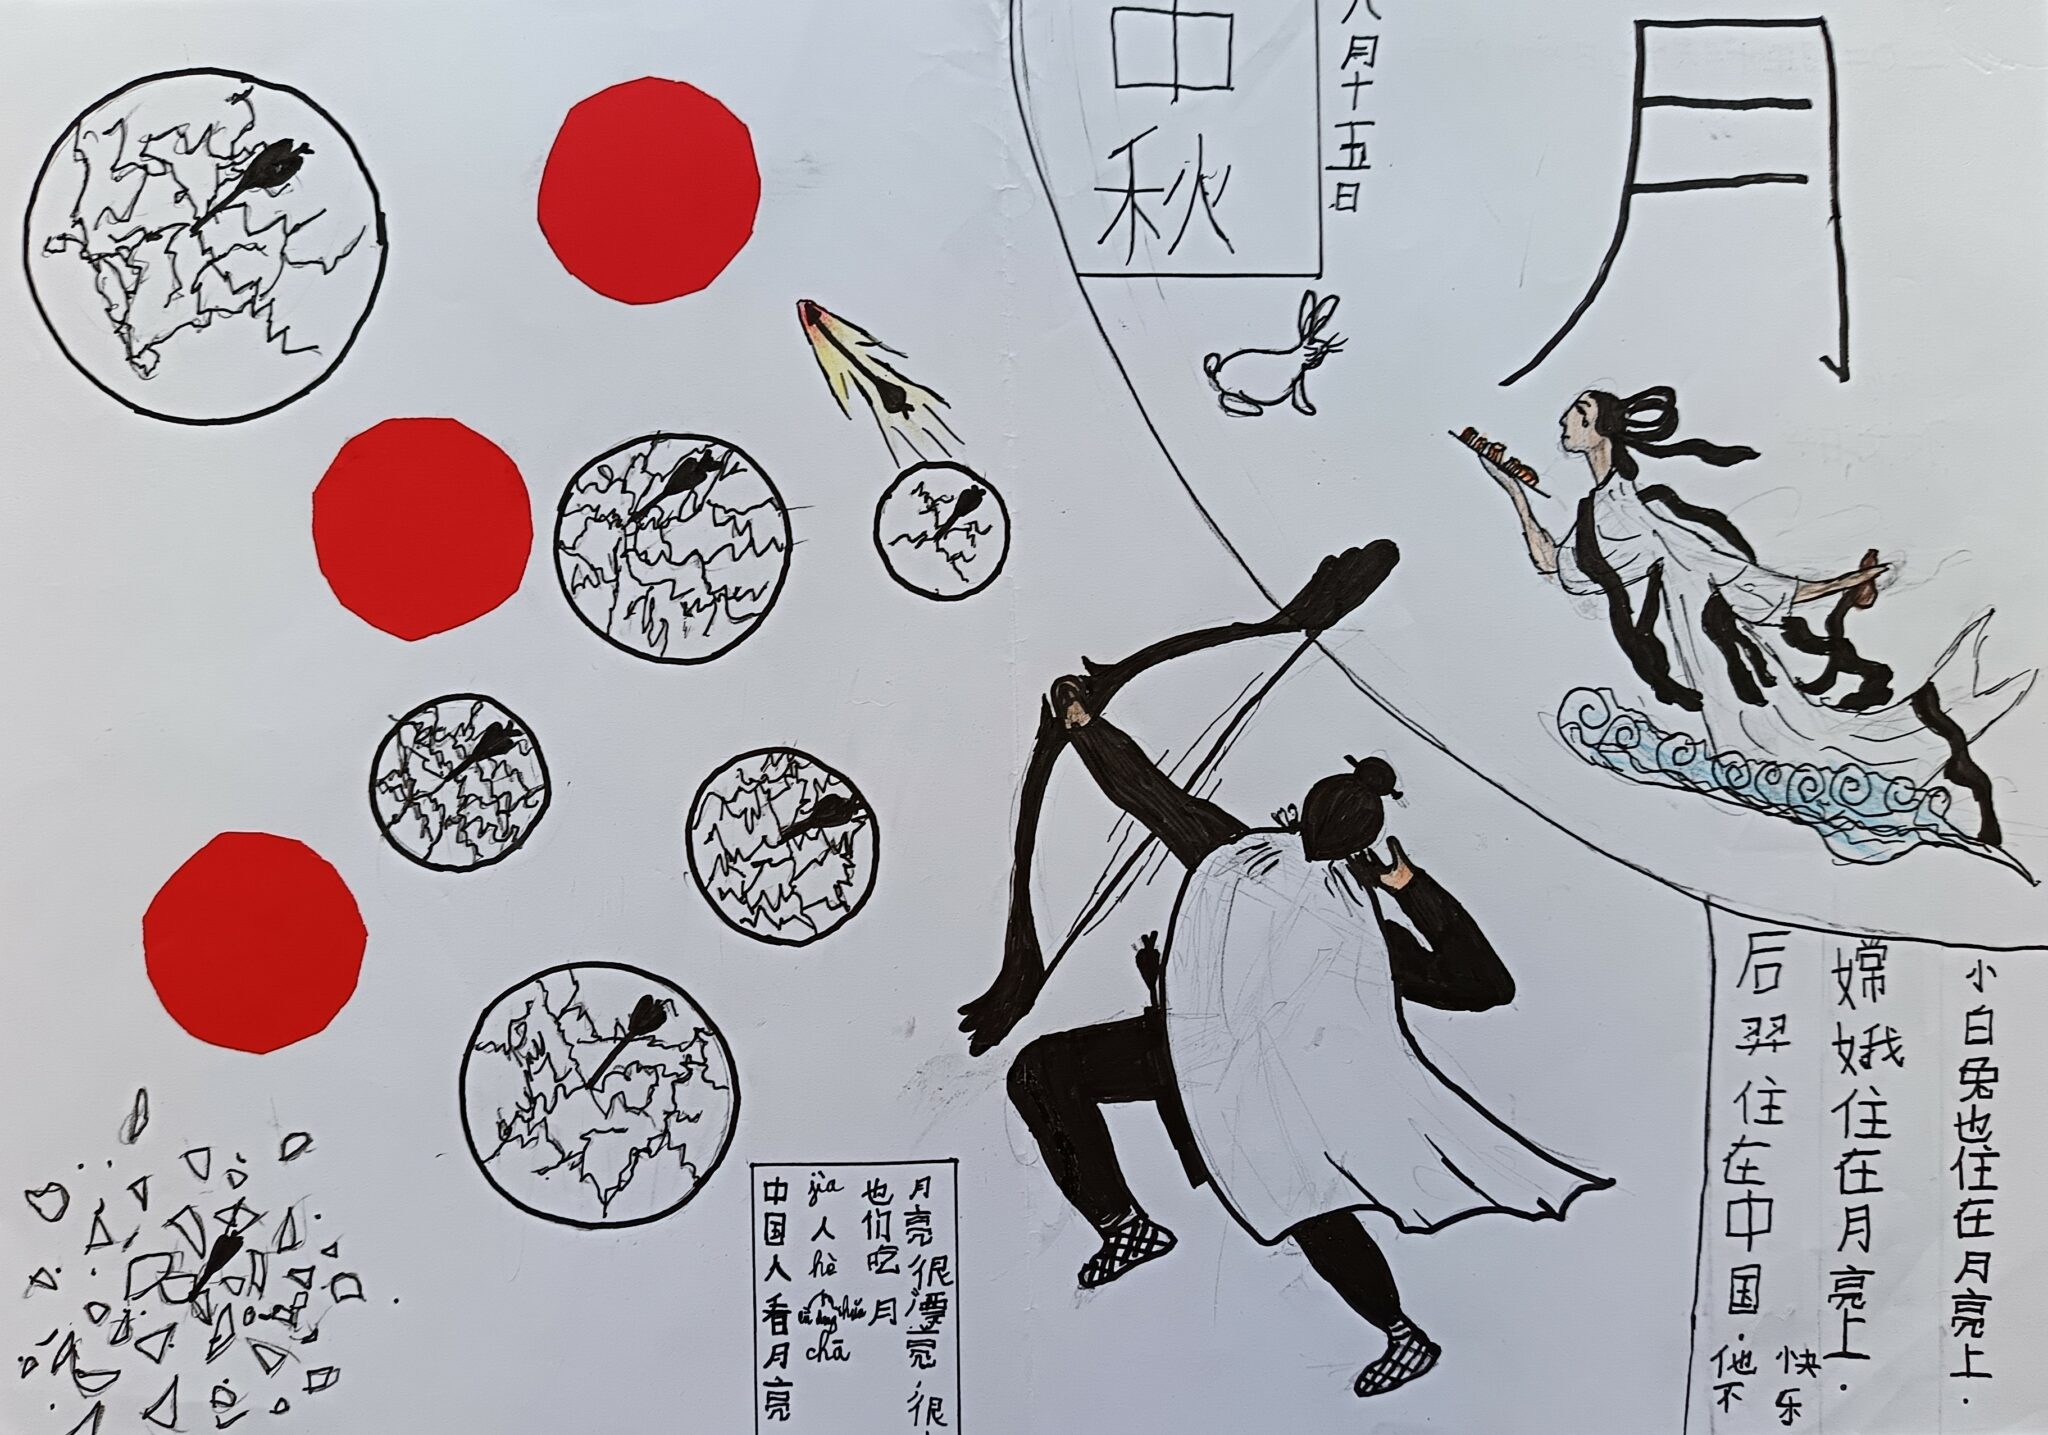 中秋
八月十五日
月
后羿住在中国.他不
快乐
嫦娥住在月亮上.
小白兔也住在月亮上.
中国人看月亮
jiā人hē chá
也们吃月
月亮很漂亮,很